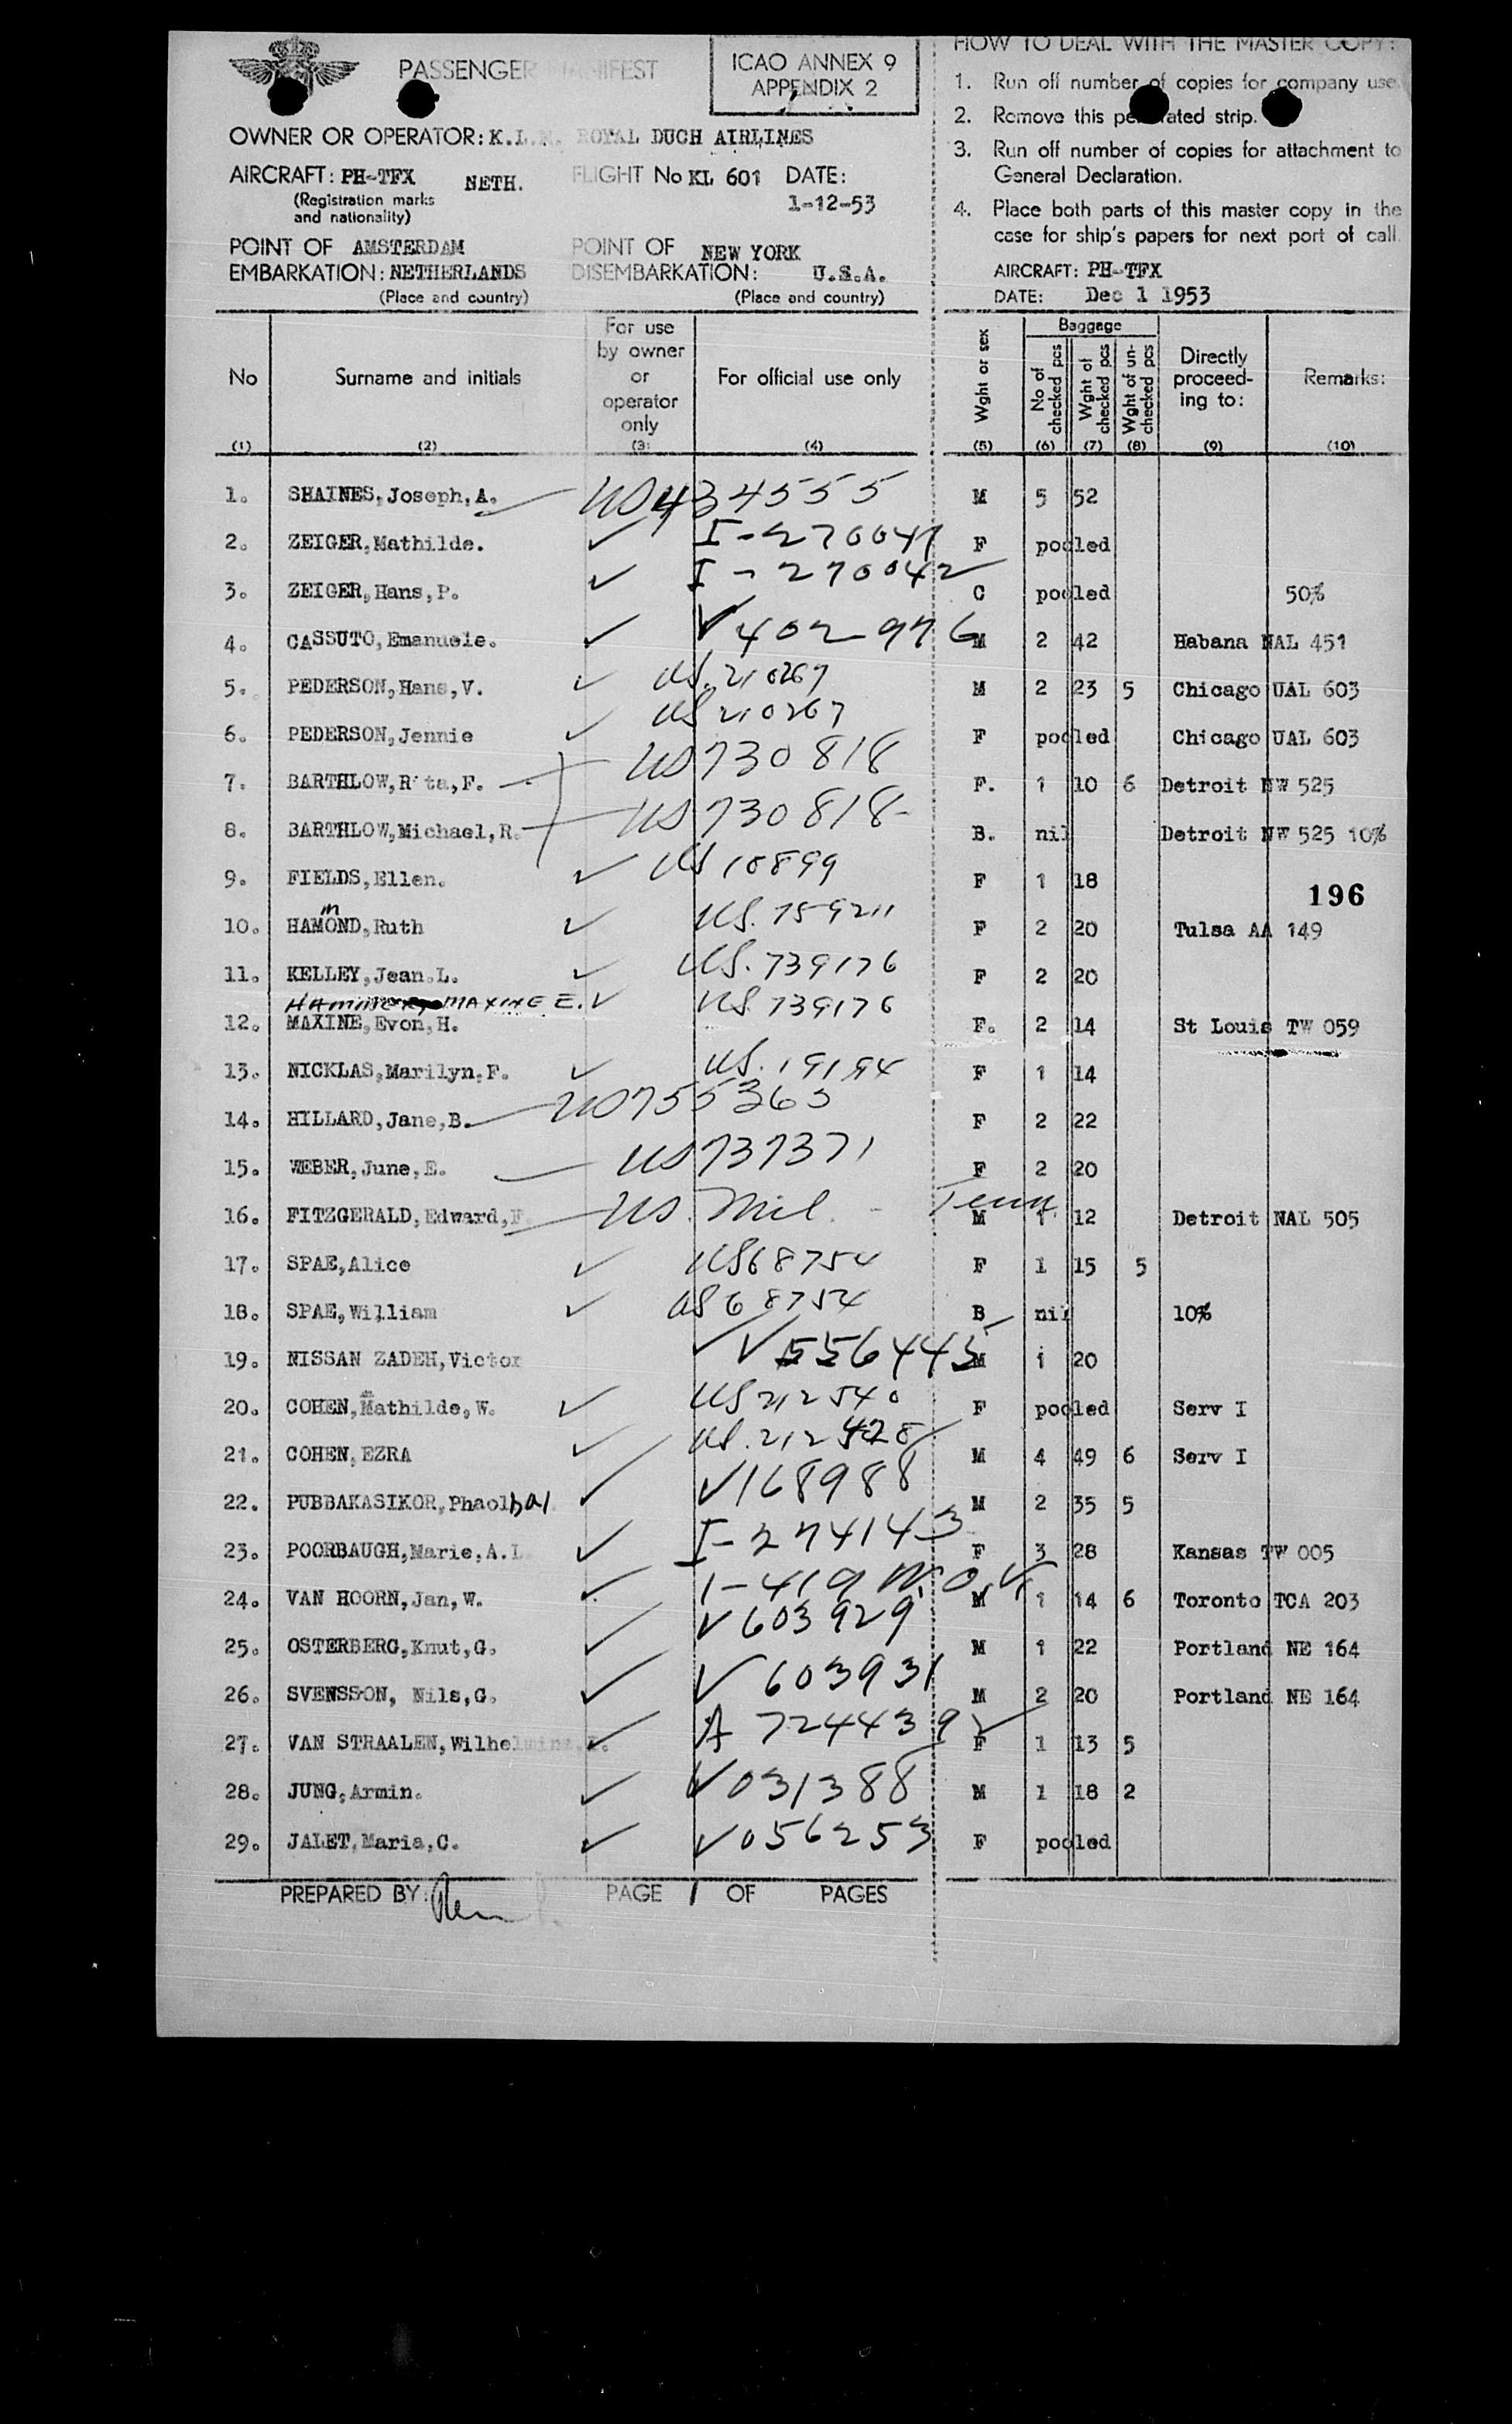 PASSENGER MANIFEST
ICAO ANNEX 9
APPENDIX 2
OWNER OR OPERATOR: K.L.M. ROYAL DUCH AIRLINES
AIRCRAFT: PH-TFX NETH. FLIGHT No KL 601 DATE:
(Registration marks
and nationality)
1-12-53
POINT OF AMSTERDAM POINT OF NEW YORK
EMBARKATION: NETHERLANDS DISEMBARKATION: U.S.A.
(Place and country) (Place and country)
HOW TO DEAL WITH THE MASTER COPY:
1. Run off number of copies for company use.
2. Remove this perforated strip.
3. Run off number of copies for attachment to
General Declaration.
4. Place both parts of this master copy in the
case for ship's papers for next port of call.
AIRCRAFT: PH-TFX
DATE: Dec 1 1953
No Surname and initials For use by owner or operator only For official use only Wght or sex Baggage No of checked pcs Wght of checked pcs Wght of un-checked pcs Directly proceed-ing to: Remarks:
(1) (2) (3) (4) (5) (6) (7) (8) (9) (10)
1. SHAINES, Joseph, A. US 434555 M 5 52
2. ZEIGER, Mathilde. ✓ I-270041 F pooled
3. ZEIGER, Hans, P. ✓ I-270042 C pooled 50%
4. CASSUTO, Emanuele. ✓ V 402976 M 2 42 Habana NAL 451
5. PEDERSON, Hans, V. ✓ US. 210267 M 2 23 5 Chicago UAL 603
6. PEDERSON, Jennie ✓ US 210267 F pooled Chicago UAL 603
7. BARTHLOW, R ta, F. US 730818 F. 1 10 6 Detroit NW 525
8. BARTHLOW, Michael, R. US 730818 B. nil Detroit NW 525 10%
9. FIELDS, Ellen. ✓ US 10899 F 1 18
196
10. HAMOND, Ruth m ✓ US. 759211 F 2 20 Tulsa AA 149
11. KELLEY, Jean. L. ✓ US. 739176 F 2 20
MAXINE E. ✓ US. 739176
12. MAXINE, Evon, H. F. 2 14 St Louis TW 059
13. NICKLAS, Marilyn. F. ✓ US. 19194 F 1 14
14. HILLARD, Jane, B. US 755363 F 2 22
15. WEBER, June, E. US 737371 F 2 20
16. FITZGERALD, Edward, F. US. Mil. M 1 12 Detroit NAL 505
17. SPAE, Alice ✓ US 68754 F 1 15 5
18. SPAE, William ✓ US 68754 B nil 10%
19. NISSAN ZADEH, Victor ✓ V 556445 M 1 20
20. COHEN, Mathilde, W. ✓ US 212540 F pooled Serv I
21. COHEN, EZRA ✓ US. 212428 M 4 49 6 Serv I
22. PUBBAKASIKOR, Phaolbal ✓ V168988 M 2 35 5
23. POORBAUGH, Marie, A. L. ✓ I-274143 F 3 28 Kansas TW 005
24. VAN HOORN, Jan, W. ✓ M 1 14 6 Toronto TCA 203
25. OSTERBERG, Knut, G. ✓ V 603929 M 1 22 Portland NE 164
26. SVENSSON, Nils, G. ✓ V 603931 M 2 20 Portland NE 164
27. VAN STRAALEN, Wilhelmina. ✓ A 724439 ✓ F 1 13 5
28. JUNG, Armin. ✓ V 031388 M 1 18 2
29. JALET, Maria, C. ✓ V 056253 F pooled
PREPARED BY: PAGE 1 OF PAGES